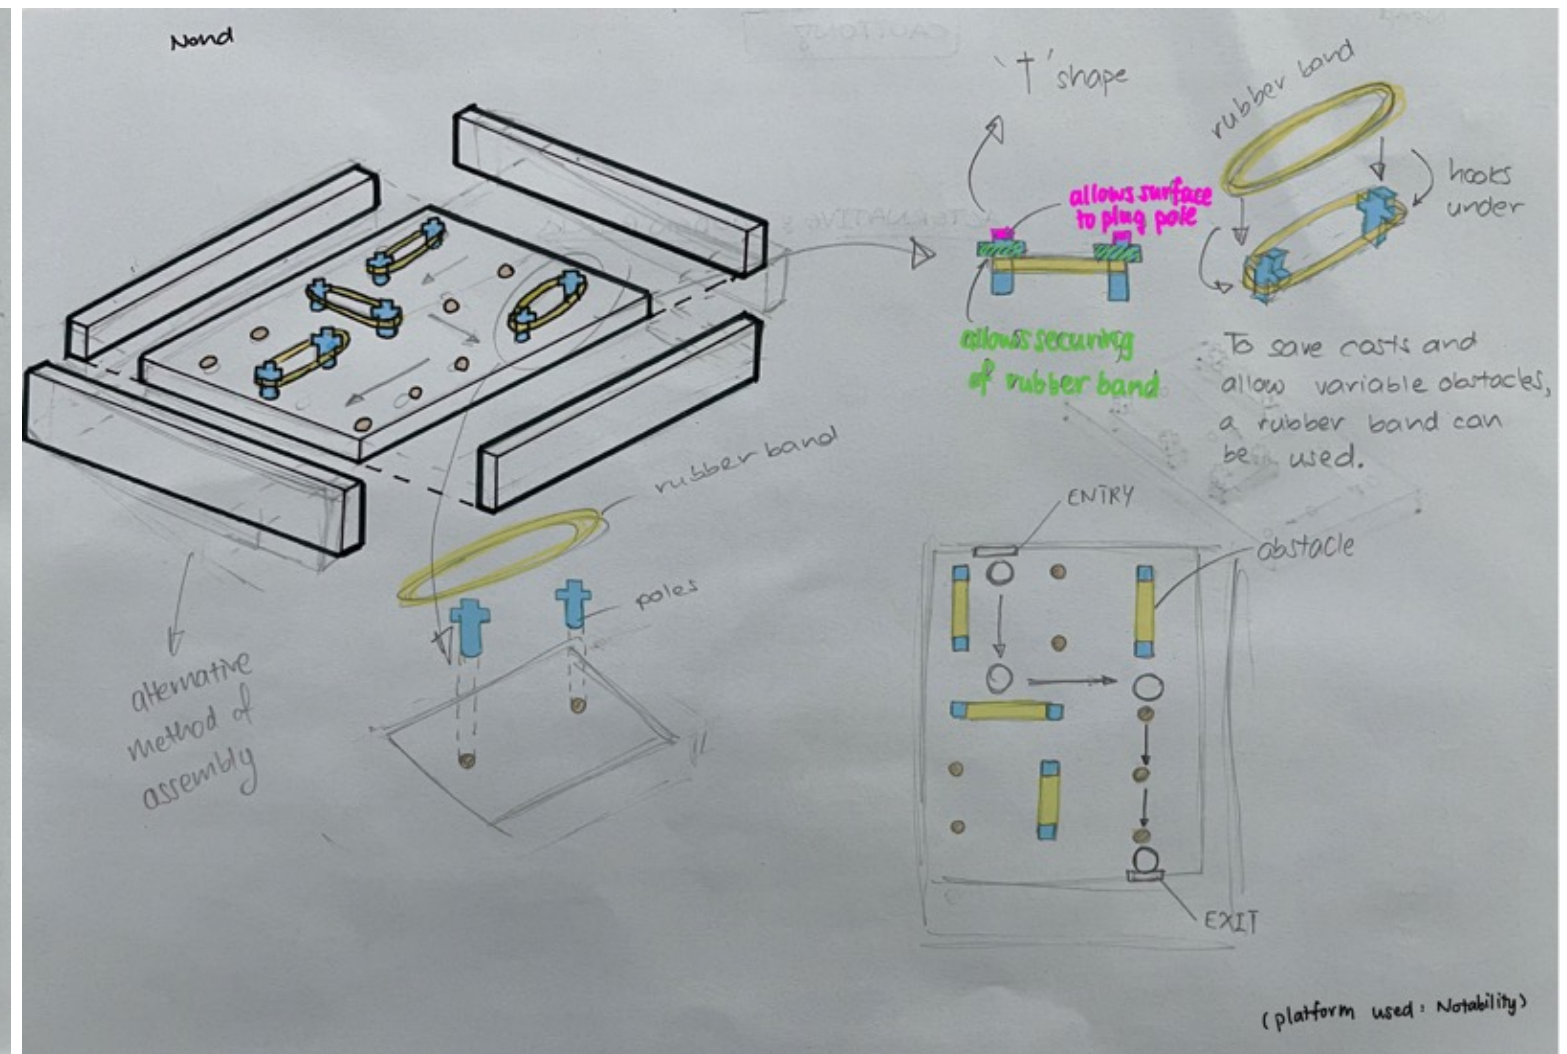 Nond
'T' shape
rubber band
allows surface
to plug pole
hooks
under
allows securing
of rubber band
To save costs and
allow variable obstacles,
a rubber band can
be used.
rubber band
poles
alternative
method of
assembly
ENTRY
obstacle
EXIT
(platform used: Notability)